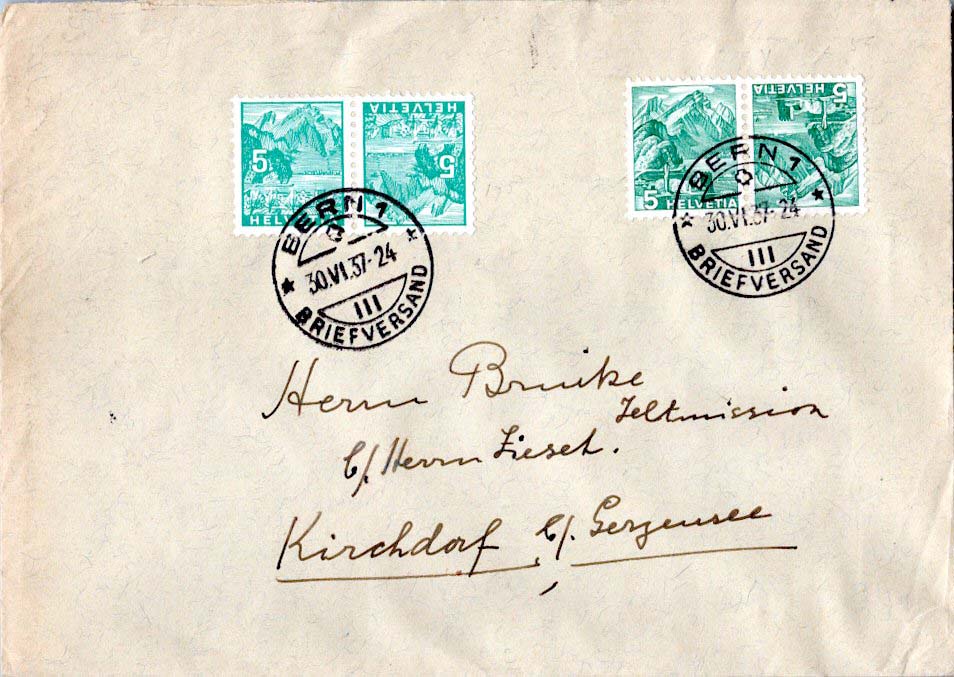 5
HELVETIA
HELVETIA
5
5
HELVETIA
HELVETIA
5
BERN 1
30.VI.37-24
III
BRIEFVERSAND
BERN 1
30.VI.37-24
III
BRIEFVERSAND
Herrn
Zeltmission
b/. Herrn
Kirchdorf b/. Gerzensee